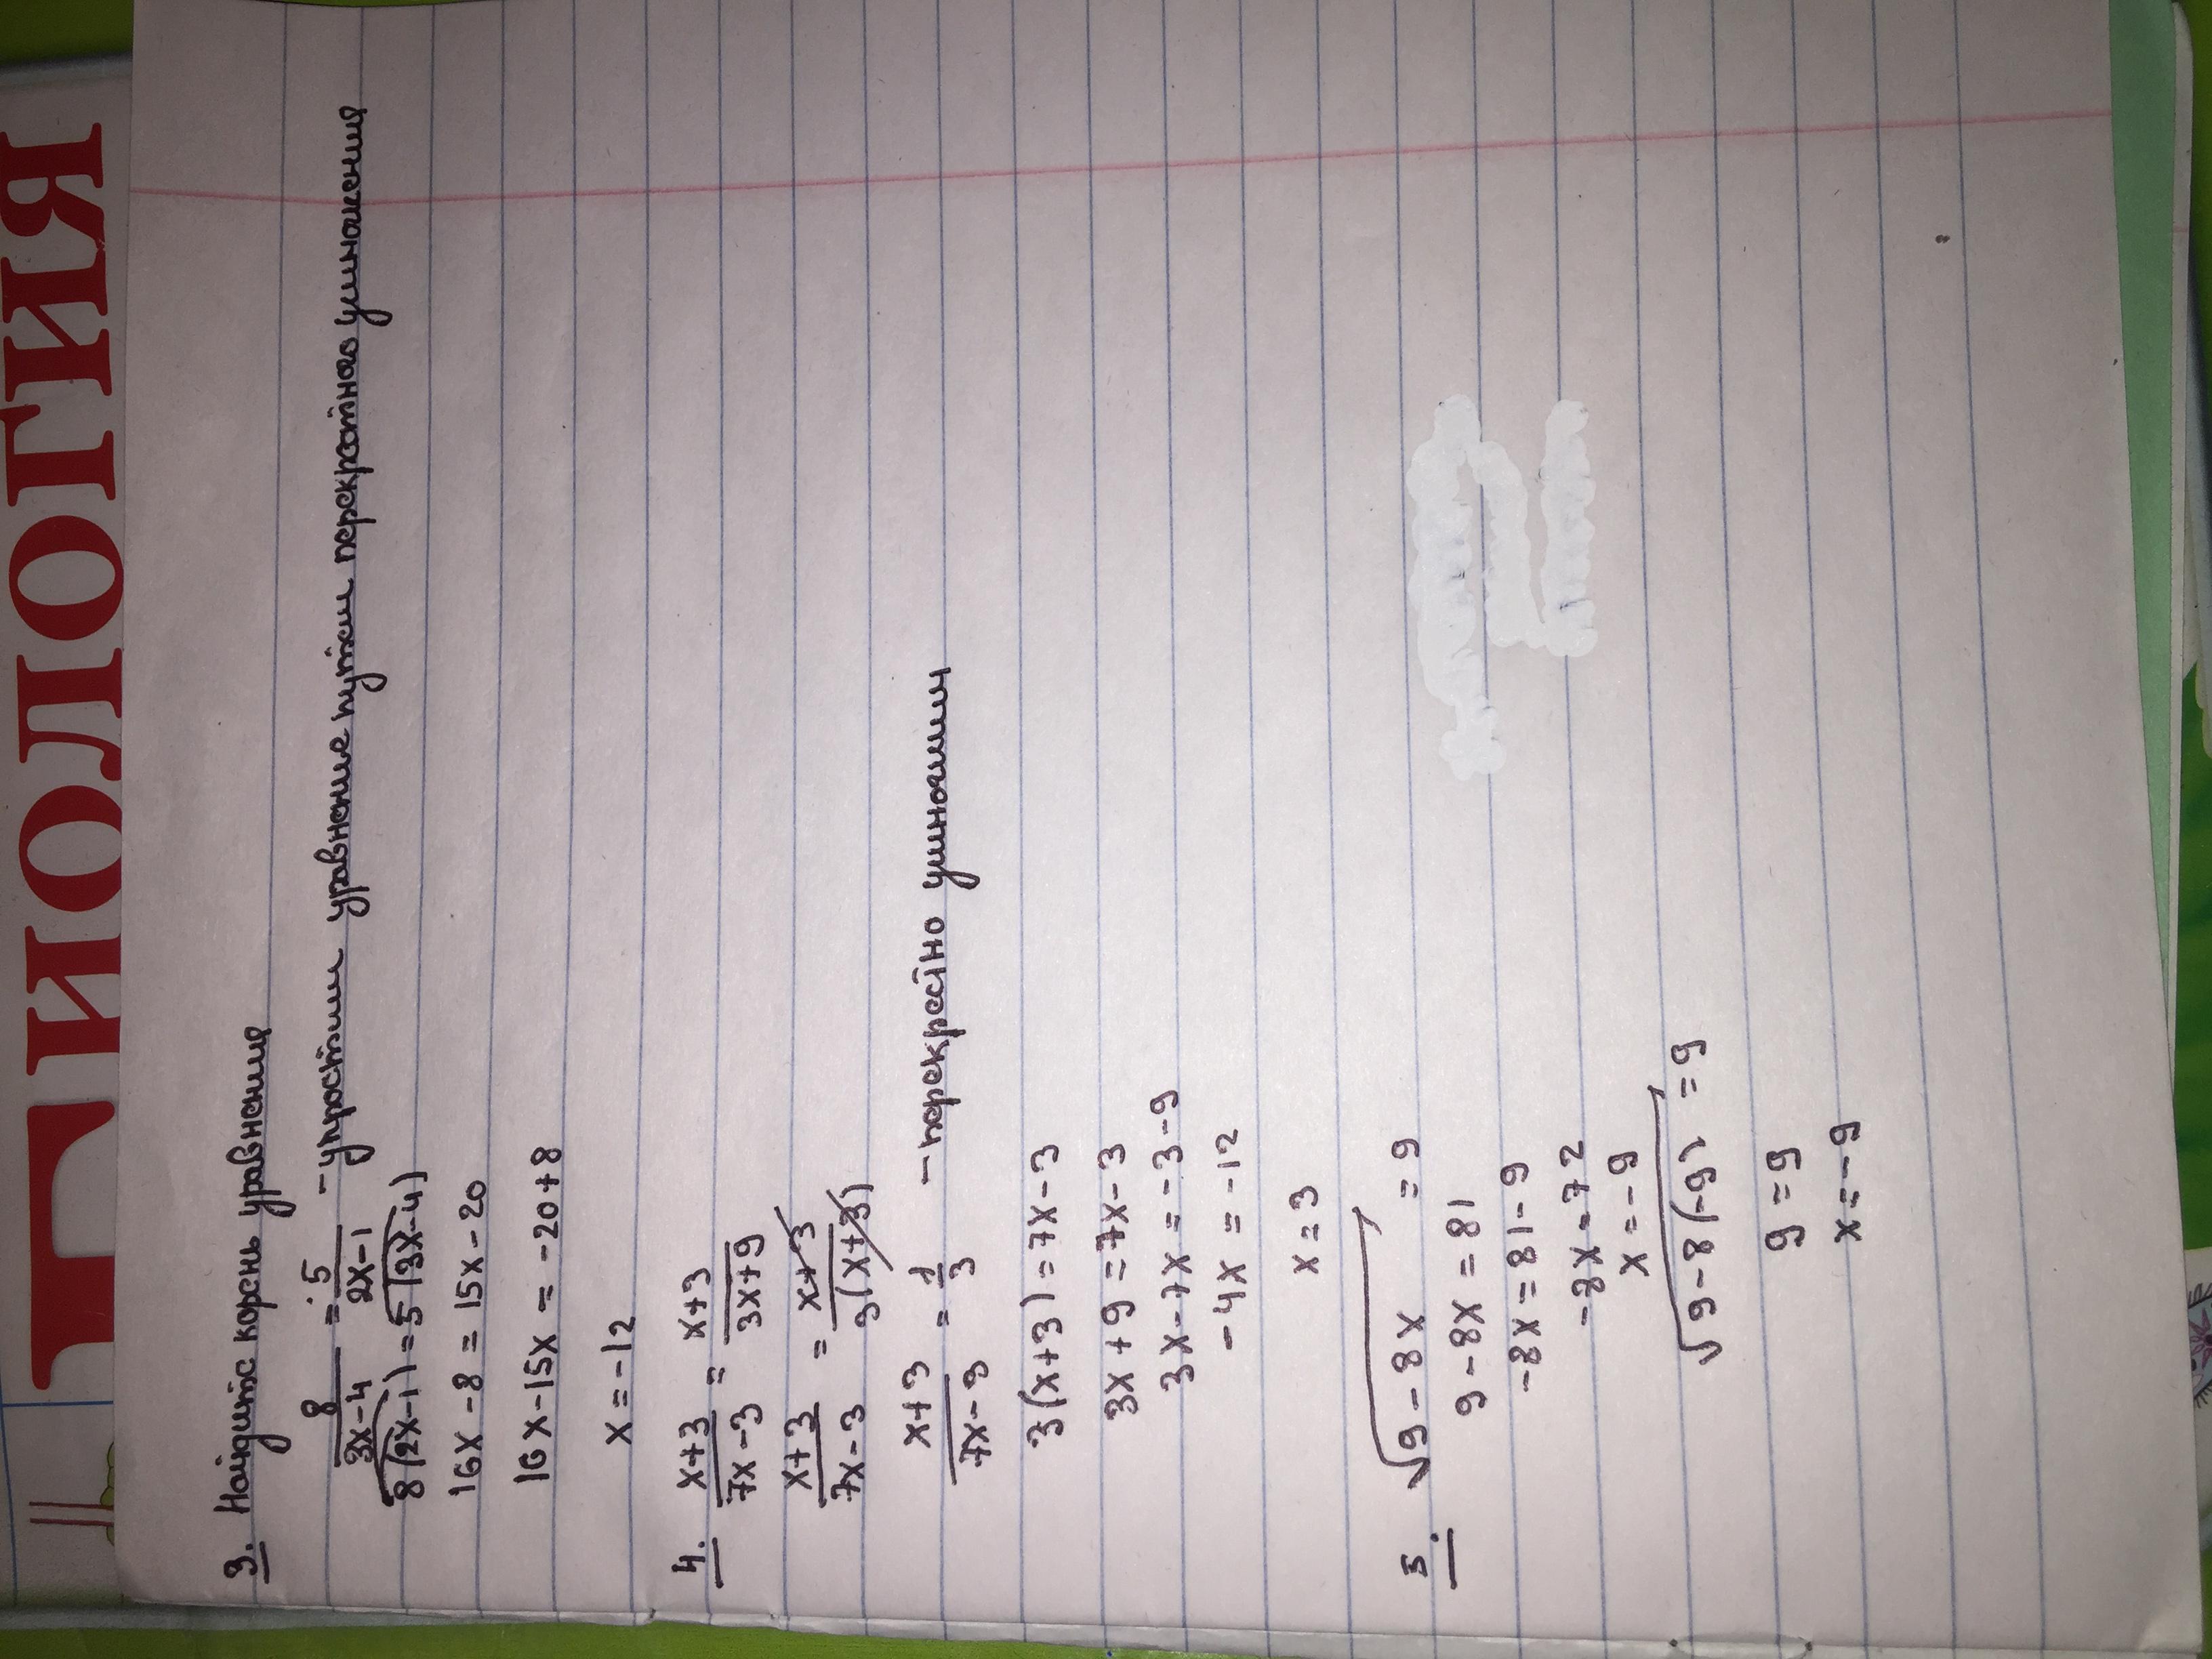 ИОЛОГИЯ
3. Найдите корень уравнения
8/(3x-4) = 5/(2x-1) - упростим уравнение путём перекрёстного умножения
8(2x-1)=5(3x-4)
16x-8=15x-20
16x-15x=-20+8
x=-12
4. (x+3)/(7x-3) = (x+3)/(3x+9)
(x+3)/(7x-3) = (x+3)/(3(x+3))
(x+3)/(7x-3) = 1/3 - перекрёстно умножим
3(x+3)=7x-3
3x+9=7x-3
3x-7x=-3-9
-4x=-12
x=3
5. √(9-8x) =9
9-8x=81
-8x=81-9
-8x=72
x=-9
√(9-8(-9)) =9
9=9
x=-9